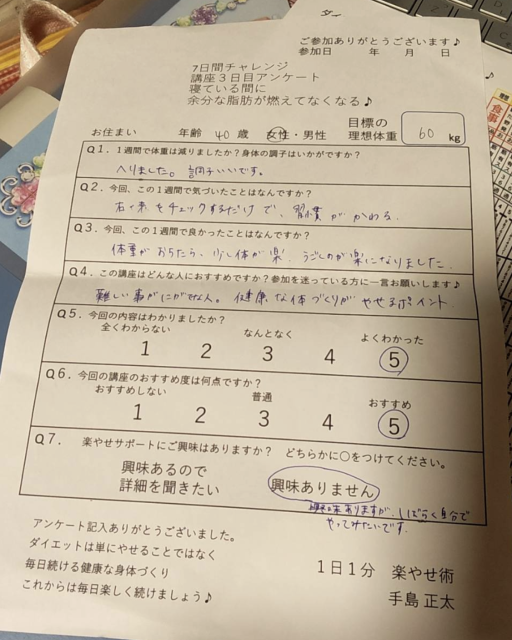 ご参加ありがとうございます♪
参加日 年 月 日
7日間チャレンジ
講座3日目アンケート
寝ている間に
余分な脂肪が燃えてなくなる♪
お住まい 年齢 40 歳 女性・男性 目標の理想体重 60 kg
Q1．1週間で体重は減りましたか？身体の調子はいかがですか？
へりました。調子いいです。
Q2．今回、この1週間で気づいたことはなんですか？
をチェックするだけで、習慣がかわる。
Q3．今回、この1週間で良かったことはなんですか？
体重がおちたら、少し体が楽、うごくのが楽になりました。
Q4．この講座はどんな人におすすめですか？参加を迷っている方に一言お願いします♪
難しい事がにがてな人。健康な体づくりがやせるポイント
Q5．今回の内容はわかりましたか？
全くわからない なんとなく よくわかった
1 2 3 4 5
Q6．今回の講座のおすすめ度は何点ですか？
おすすめしない 普通 おすすめ
1 2 3 4 5
Q7． 楽やせサポートにご興味はありますか？ どちらかに○をつけてください。
興味あるので
詳細を聞きたい
興味ありません
興味ありますが、しばらく自分で
やってみたいです。
アンケート記入ありがとうございました。
ダイエットは単にやせることではなく
毎日続ける健康な身体づくり
これからは毎日楽しく続けましょう♪
1日1分 楽やせ術
手島 正太
食事